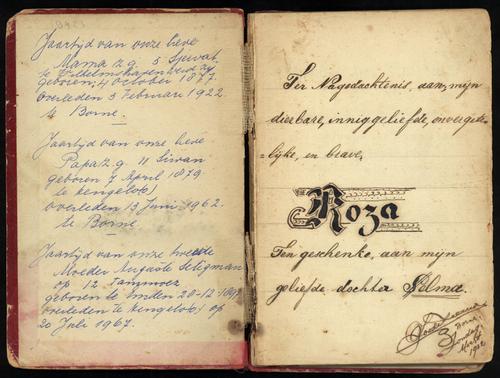 Jaartijd van onze lieve
Mama z.g. 5 Sjewat
te Wilhelmshaven
geboren, 4 October 1877.
overleden 3 Februari 1922.
te Borne.
Jaartijd van onze lieve
Papa z.g. 11 Siwan
geboren 7 April 1879
te Hengelo(o)
overleden 13 Juni 1962.
te Borne
Jaartijd van onze tweede
Moeder Auguste Seligman
op 12 Tammoez
geboren te Emden 20-12-
overleden te Hengelo(o) op
20 Juli 1967.
Ter Nagedachtenis, aan, mijn
dierbare, innig geliefde, onverge-
=lijke, en brave,
Roza
Ten geschenke, aan mijn
geliefde dochter Selma.
Borne
1922